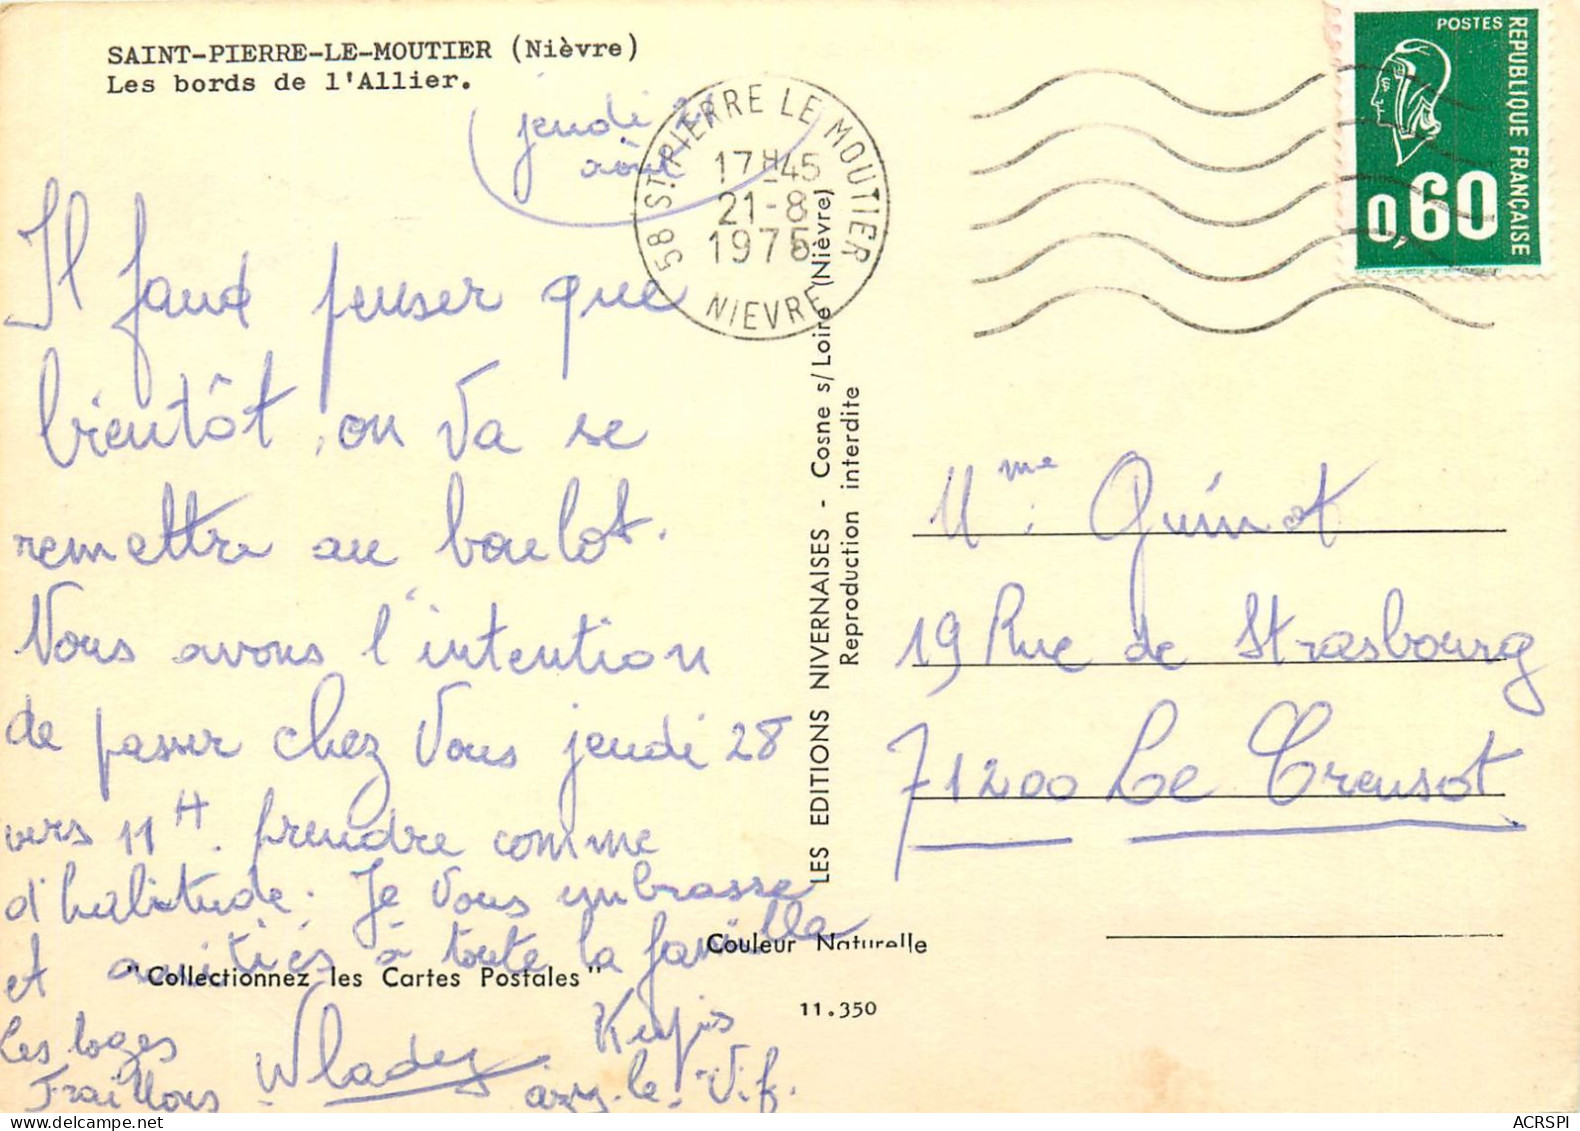 SAINT-PIERRE-LE-MOUTIER (Nièvre)
Les bords de l'Allier.
jeudi 21
août
58 ST PIERRE LE MOUTIER
17H-45
21-8
1975
NIEVRE
POSTES
REPUBLIQUE FRANÇAISE
0,60
Il faut penser que
bientôt, on va se
remettre au boulot.
Nous avons l'intention
de passer chez vous jeudi 28
vers 11H. prendre comme
d'habitude. Je vous embrasse
et amitiés à toute la famille
Les Loges
Wladey
azy-le-Vif.
"Collectionnez les Cartes Postales"
Couleur Naturelle
11.350
LES EDITIONS NIVERNAISES - Cosne s/Loire (Nièvre)
Reproduction interdite
Mme Quinot
19 Rue de Strasbourg
71200 Le Creusot
ACRSPI